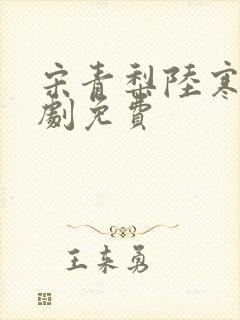 宋青梨陸寒
劇免費
王来勇